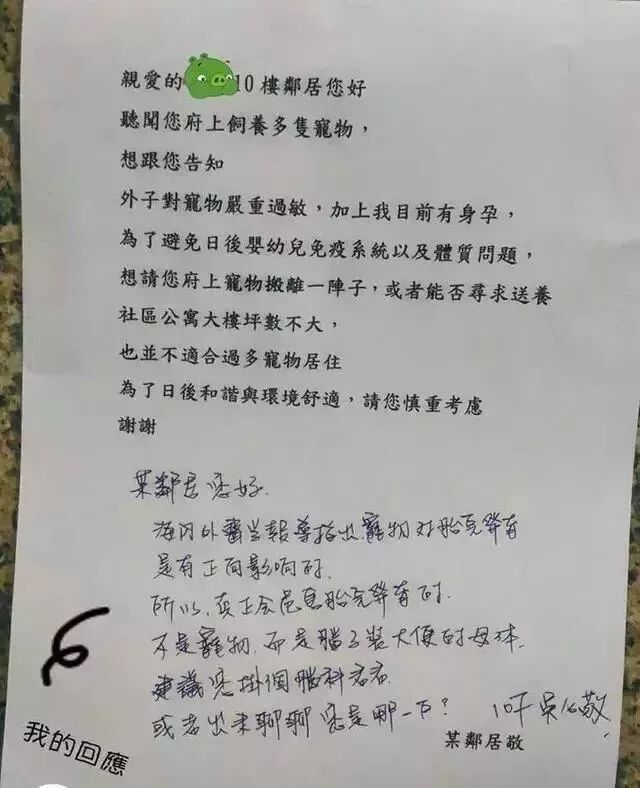 親愛的
10樓鄰居您好
聽聞您府上飼養多隻寵物，
想跟您告知
外子對寵物嚴重過敏，加上我目前有身孕，
為了避免日後嬰幼兒免疫系統以及體質問題，
想請您府上寵物搬離一陣子，或者能否尋求送養
社區公寓大樓坪數不大，
也並不適合過多寵物居住
為了日後和諧與環境舒適，請您慎重考慮
謝謝
某鄰居您好.
海內外醫學報導指出.寵物對胎兒發育
是有正向影响的.
所以.真正会危害胎兒發育的.
不是寵物.而是腦子裝大便的母体.
建議您掛個腦科看看.
或者出來聊聊您是哪一F?
10F 吳公敬.
某鄰居敬
我的回應